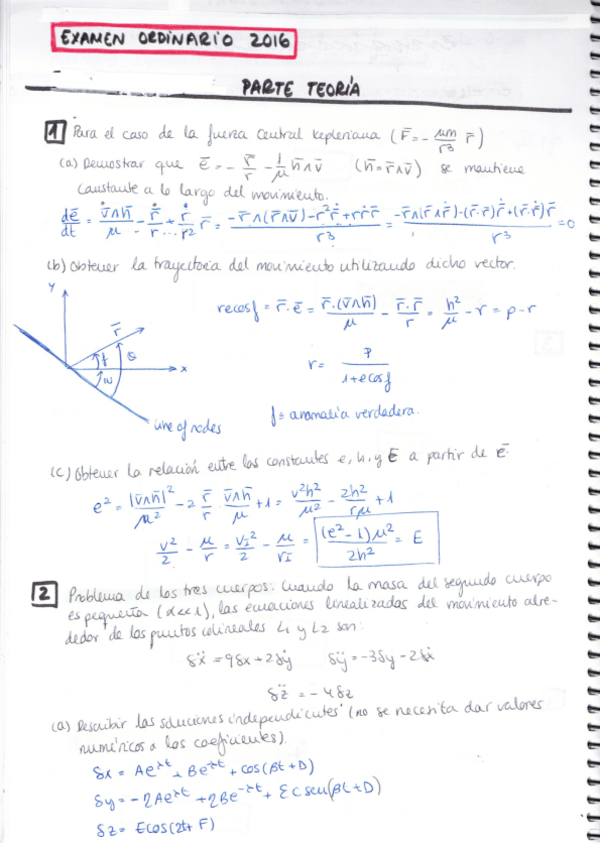 EXAMEN ORDINARIO 2016
PARTE TEORÍA
1 Para el caso de la fuerza central kepleriana (F̄ = - μm/r³ r̄)
(a) Demostrar que ē = - r̄/r - 1/μ h̄∧v̄ (h̄ = r̄∧v̄) se mantiene
constante a lo largo del movimiento.
dē/dt = v̄̇∧h̄/μ - r̄̇/r + ṙ/r² r̄ = (-r̄∧(r̄∧v̄) - r²r̄̇ + rṙr̄)/r³ = (-r̄∧(r̄∧r̄̇) - (r̄·r̄)r̄̇ + (r̄·r̄̇)r̄)/r³ = 0
(b) Obtener la trayectoria del movimiento utilizando dicho vector.
Y
r e cos f = r̄·ē = r̄·(v̄∧h̄)/μ - r̄·r̄/r = h²/μ - r = p - r
r̄
f
θ
x
ω
r = p/(1+e cos f)
line of nodes
f = anomalía verdadera.
(c) Obtener la relación entre las constantes e, h, y E a partir de ē.
e² = |v̄∧h̄|²/μ² - 2 r̄/r · v̄∧h̄/μ + 1 = v²h²/μ² - 2h²/rμ + 1
v²/2 - μ/r = v_I²/2 - μ/r_I = (e²-1)μ²/2h² = E
2 Problema de los tres cuerpos. Cuando la masa del segundo cuerpo
es pequeña (α<<1), las ecuaciones linealizadas del movimiento alre-
dedor de los puntos colineales L1 y L2 son:
δẍ = 9δx + 2δẏ δÿ = -3δy - 2δẋ
δz̈ = - 4δz
(a) Describir las soluciones independientes (no se necesita dar valores
numéricos a los coeficientes).
δx = Ae^λt + Be^-λt + cos(βt+D)
δy = -ηAe^λt + ηBe^-λt + ξC sen(βt+D)
δz = E cos(2t + F)